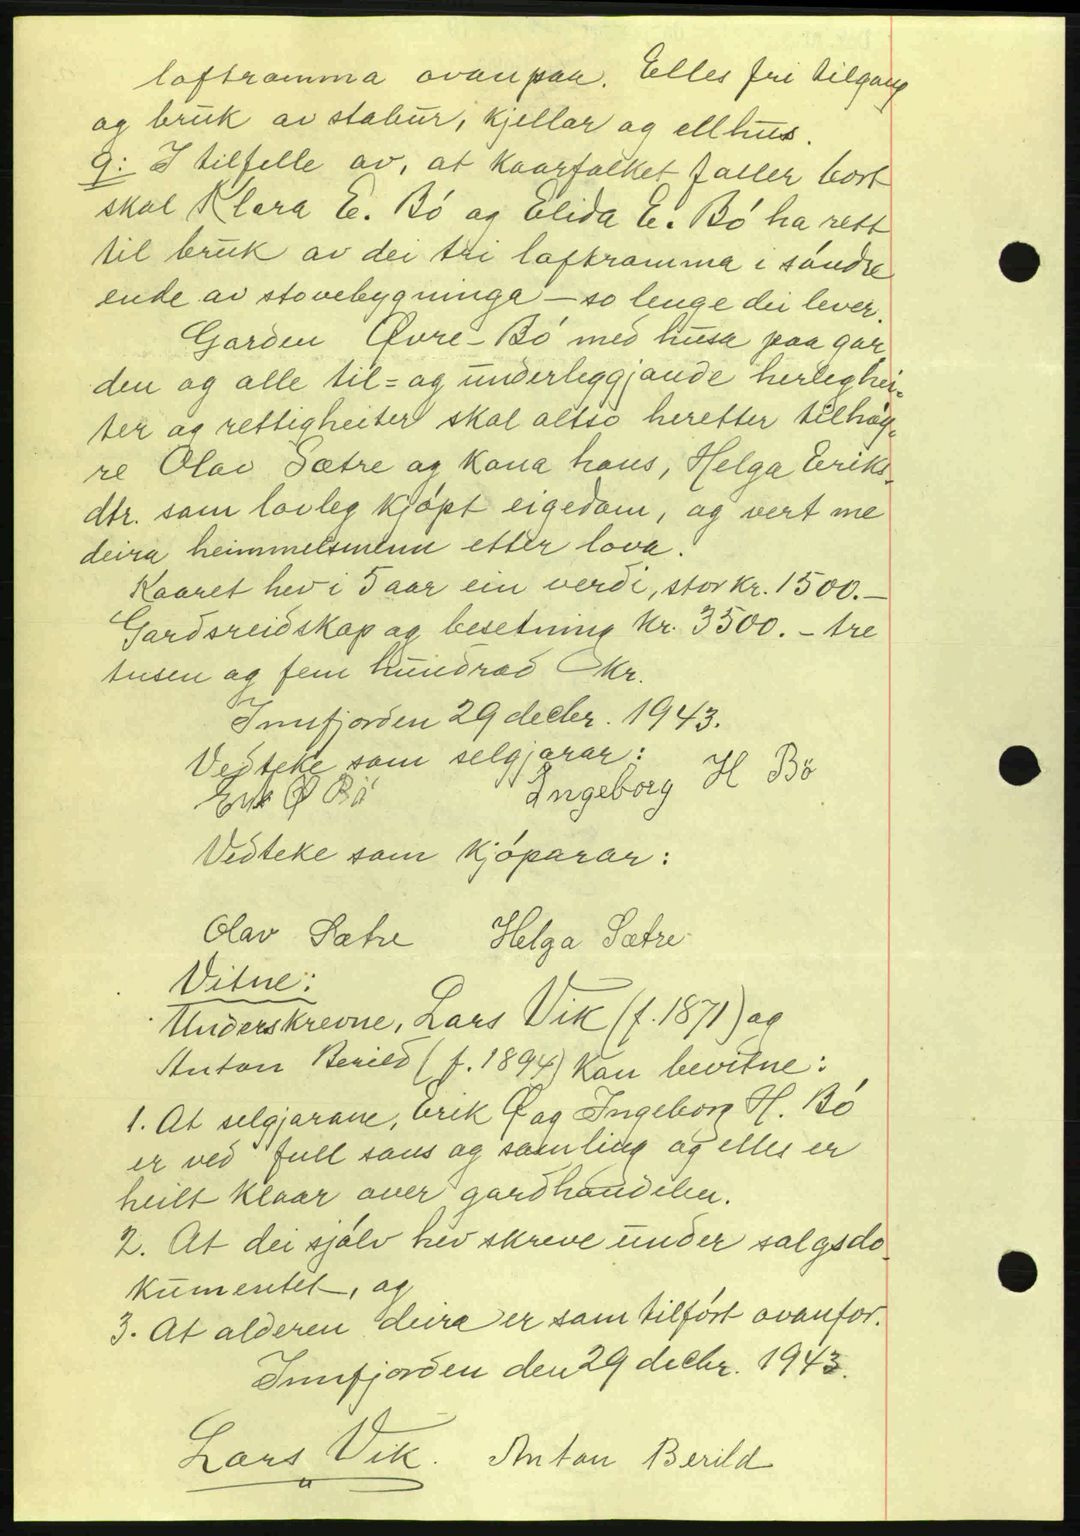 loftromma ovanpaa. Elles fri tilgang
og bruk av stabur, kjellar og ellhus.
9: I tilfelle av, at kaarfolket faller bort
skal Klara E. Bó og Elida E. Bó ha rett
til bruk av dei tri loftromma i sóndre
ende av stovebygninga – so lenge dei lever.
Garden Øvre-Bó med husa paa gar
den og alle til= og underleggjande herleghei-
ter og rettigheiter skal altso heretter tilhøy-
re Olav Sætre og kona hans, Helga Eriks-
dtr. som lovleg kjópt eigedom, og vert me
deira heimmelsmenn etter lova.
Kaaret hev i 5 aar ein verdi, stor kr. 1500.–
Gardsreidskap og besetning kr. 3500.– tre
tusen og fem hundrad kr.
Innfjorden 29 decbr. 1943.
Vedteke som selgjarar:
Erik Ø Bö Ingeborg H Bö
Vedteke som kjóparar:
Olav Sætre Helga Sætre
Vitne:
Underskrevne, Lars Vik (f. 1871) og
Anton Berild (f. 1894) kan bevitne:
1. At selgjarane, Erik Ø og Ingeborg H. Bó
er ved full sans og samling og elles er
heilt klaar over gardhandelen.
2. At dei sjólv hev skreve under salgsdo-
kumentet, og
3. At alderen deira er som tilfórt ovanfor.
Innfjorden den 29 decbr. 1943.
Lars Vik. Anton Berild